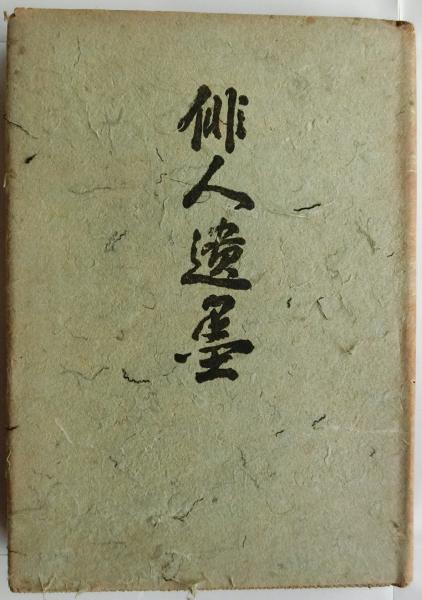 俳人遺墨